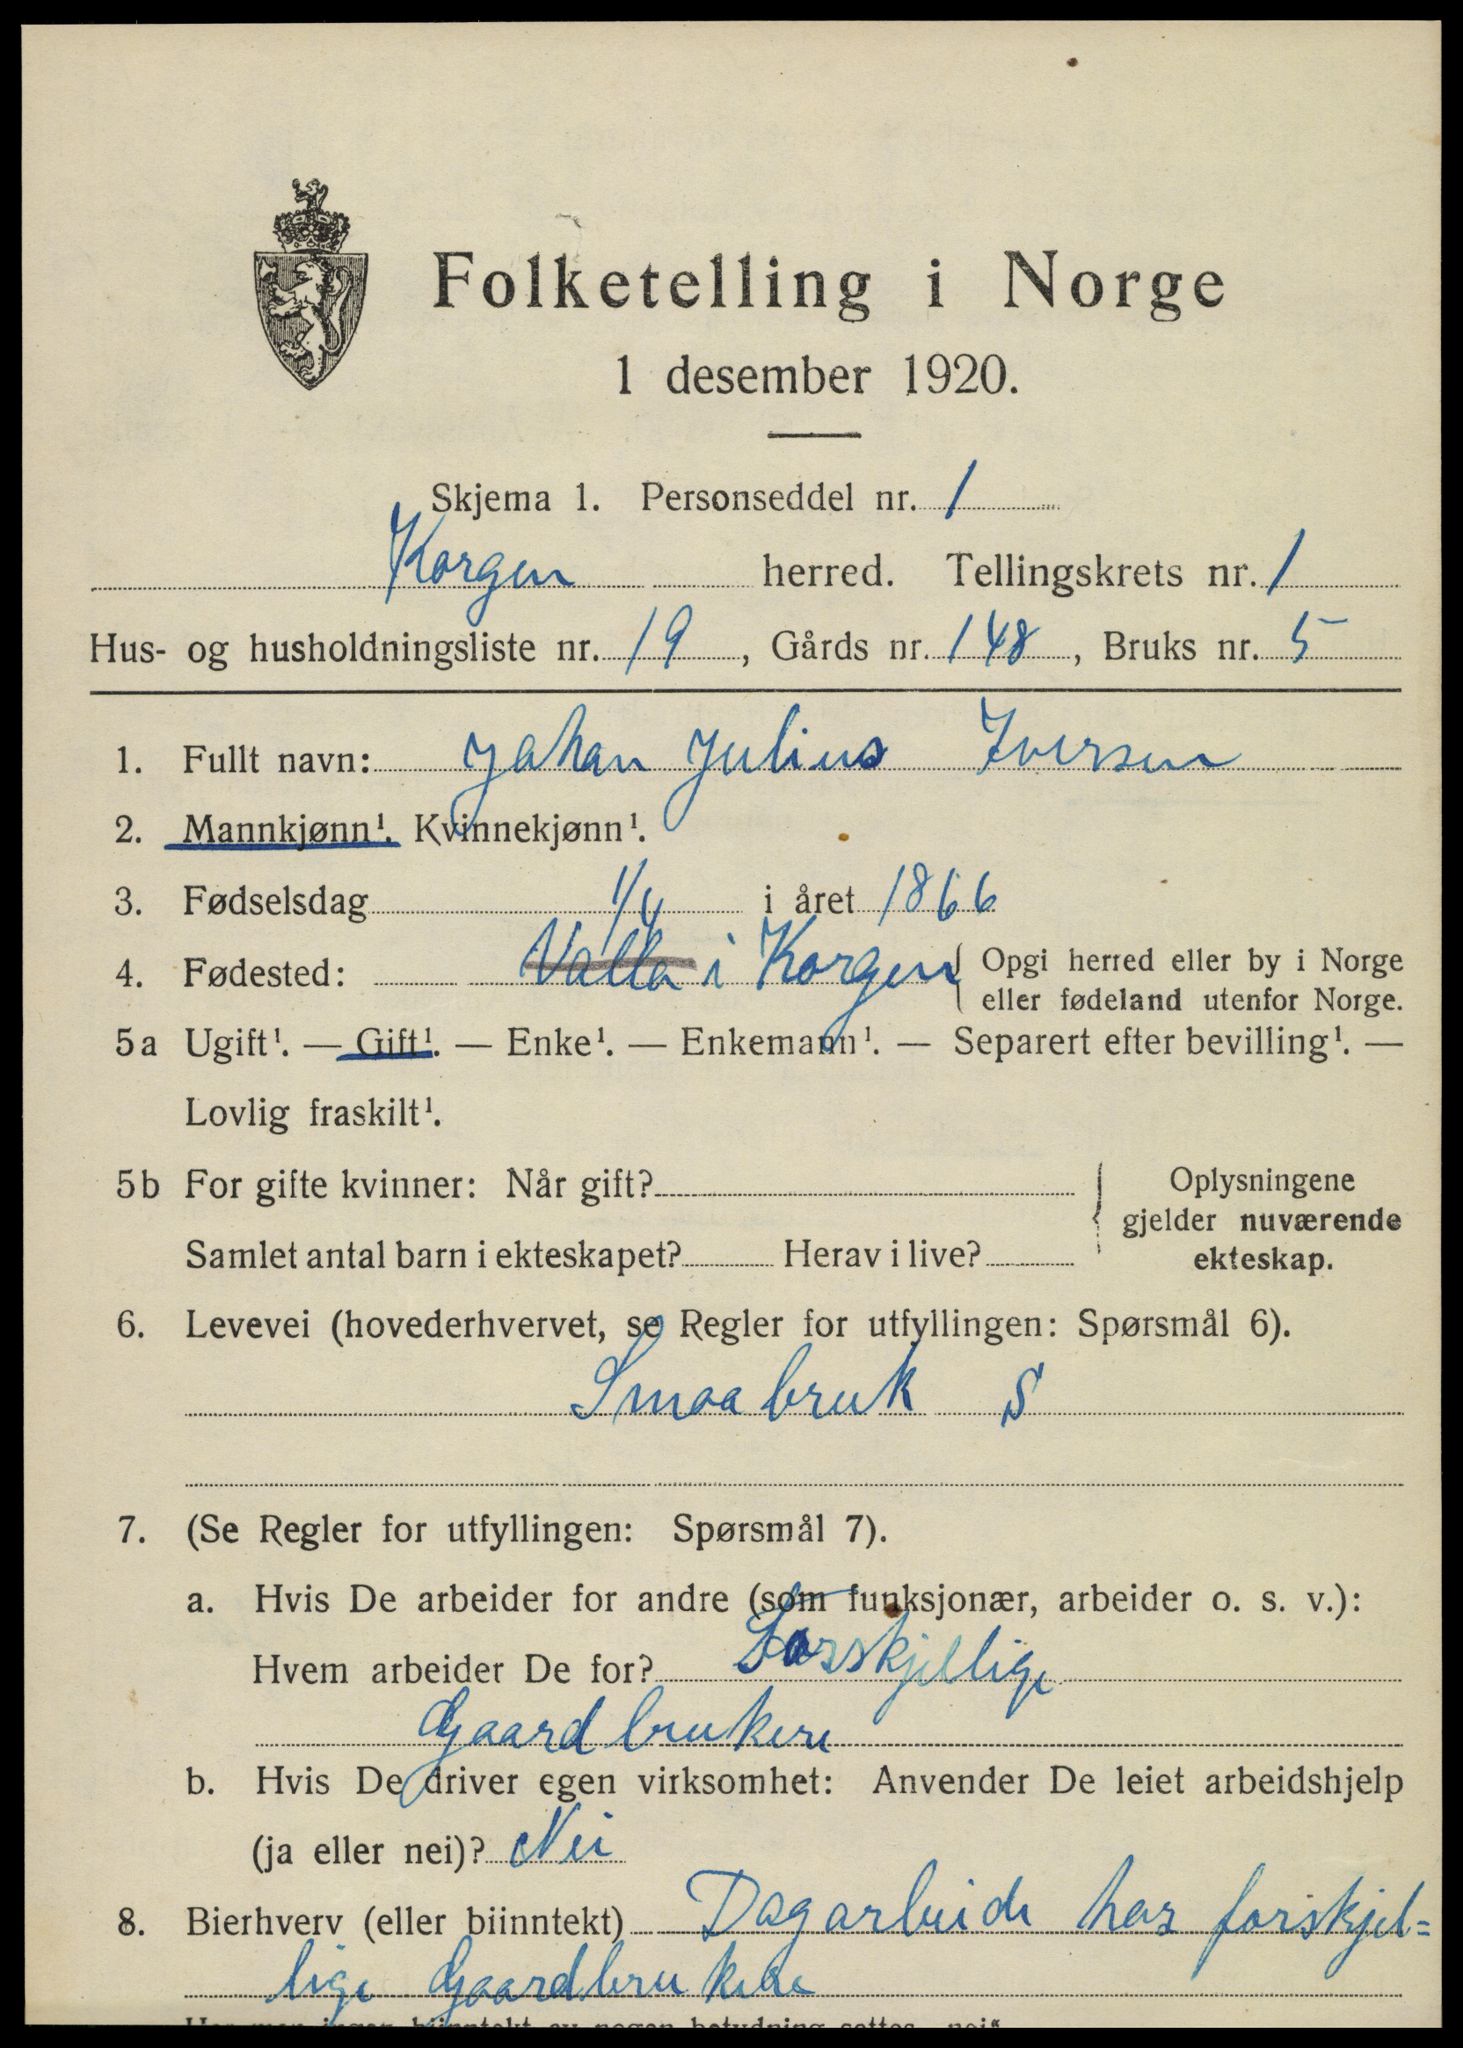 Folketelling i Norge
1 desember 1920.
Skjema 1. Personseddel nr. 1
Korgen herred. Tellingskrets nr. 1
Hus- og husholdningsliste nr. 19, Gårds nr. 148, Bruks nr. 5
1. Fullt navn: Johan Julius Iversen
2. Mannkjønn¹. Kvinnekjønn¹.
3. Fødselsdag 1/4 i året 1866
4. Fødested: Valla i Korgen { Opgi herred eller by i Norge
eller fødeland utenfor Norge.
5a Ugift¹. — Gift¹. — Enke¹. — Enkemann¹. — Separert efter bevilling¹. —
Lovlig fraskilt¹.
5b For gifte kvinner: Når gift? { Oplysningene
gjelder nuværende
Samlet antal barn i ekteskapet? Herav i live? ekteskap.
6. Levevei (hovederhvervet, se Regler for utfyllingen: Spørsmål 6).
Smaabruk S
7. (Se Regler for utfyllingen: Spørsmål 7).
a. Hvis De arbeider for andre (som funksjonær, arbeider o. s. v.):
Hvem arbeider De for? Forskjellige
Gaardbrukere
b. Hvis De driver egen virksomhet: Anvender De leiet arbeidshjelp
(ja eller nei)? Nei
8. Bierhverv (eller biinntekt) Dagarbeide hos forskjel=
lige Gaardbrukere
Har man ingen biinntekt av nogen betydning settes „nei“